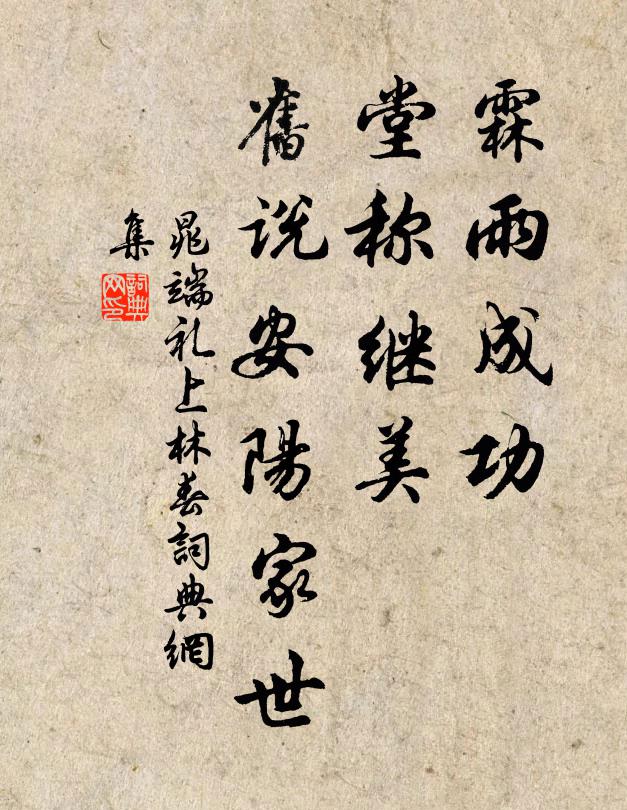 霖雨成功
堂称继美
舊说安陽家世
晁端礼上林春詞典網
集
詞典
网印